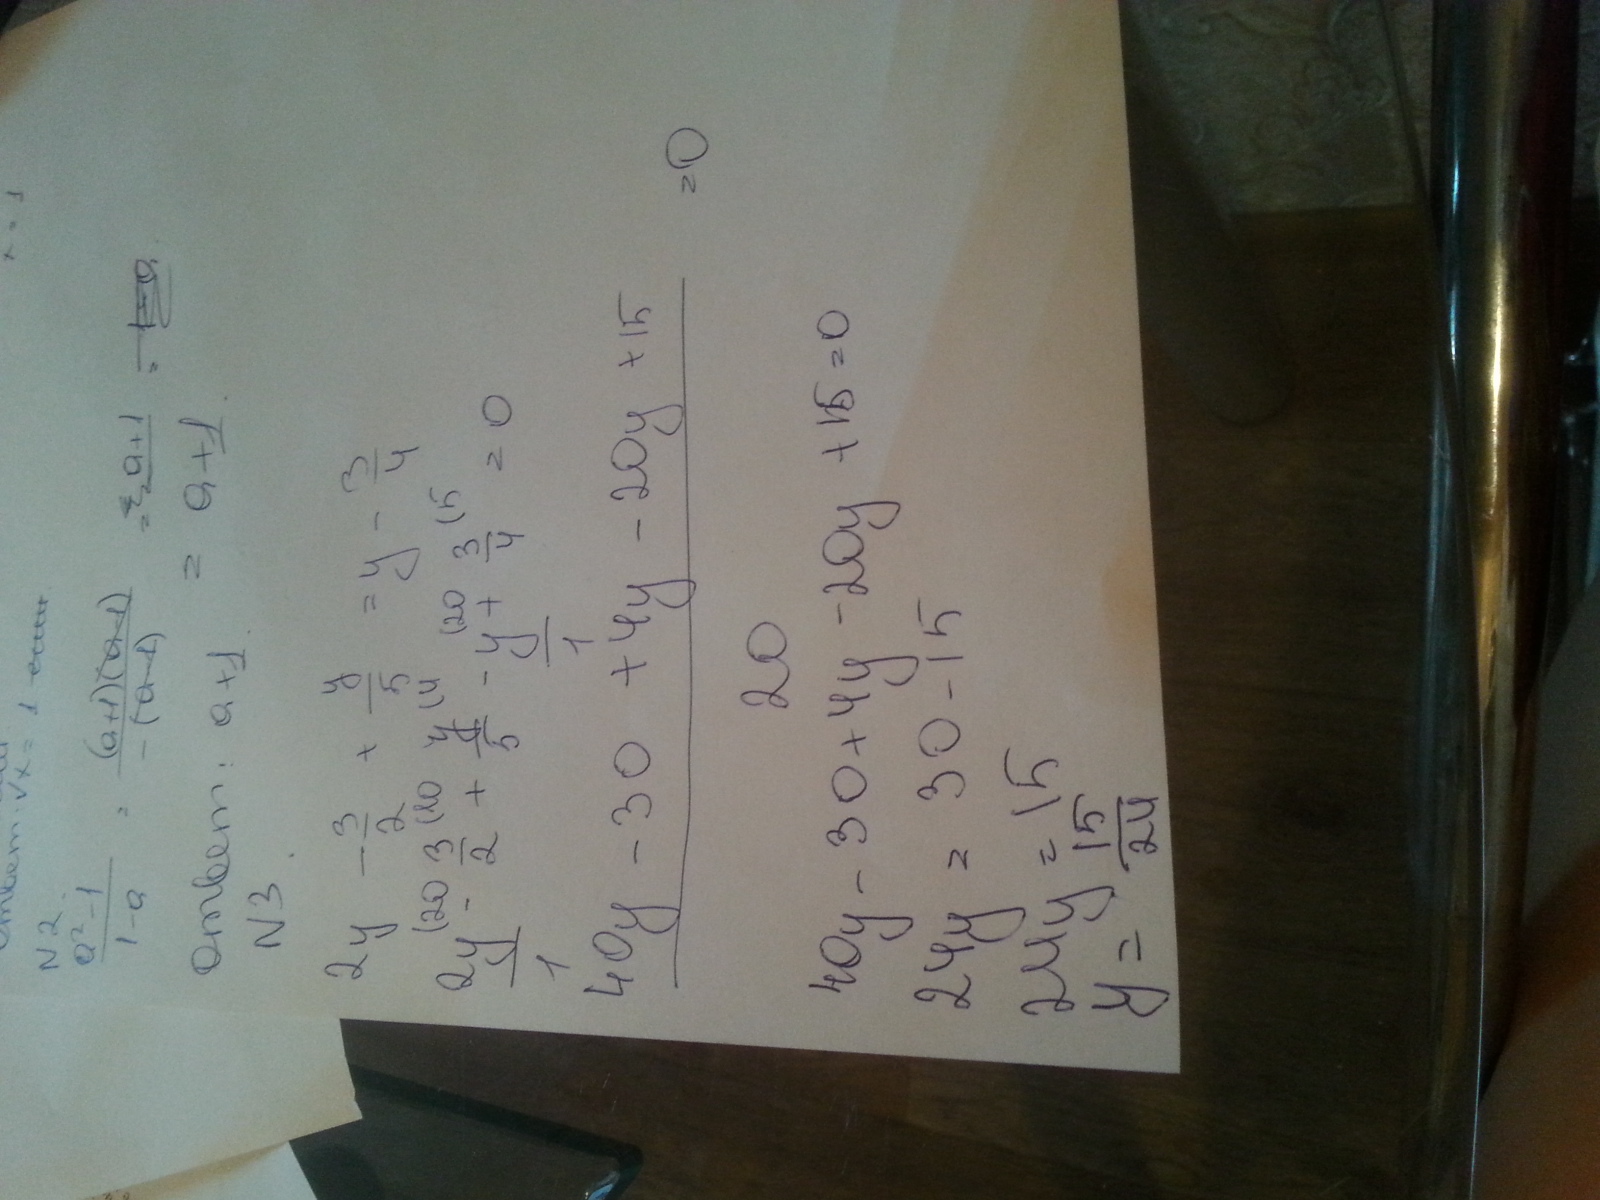 x = 1
Ответ: √x = 1
N2.
(a²-1)/(1-a) = ((a+1)(a-1))/(-(a-1)) = a+1 =
Ответ: a+1. = a+1.
N3.
2y - 3/2 + y/5 = y - 3/4
2y/1 (20 - 3/2 (10 + y/5 (4 - y/1 (20 + 3/4 (5 = 0
(40y - 30 + 4y - 20y + 15)/20 = 0
40y - 30 + 4y - 20y + 15 = 0
24y = 30 - 15
24y = 15
y = 15/24